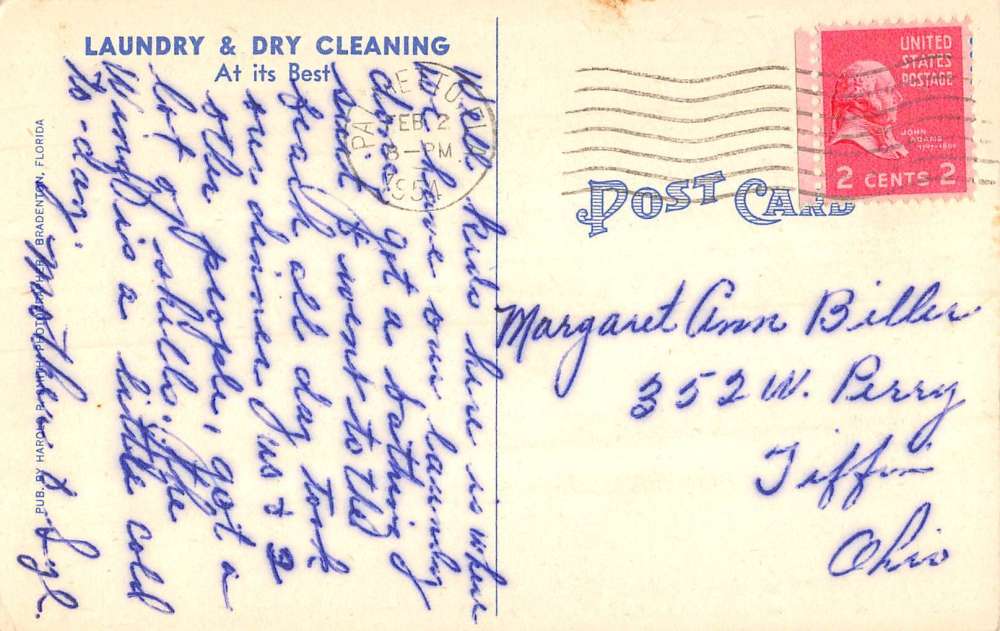 LAUNDRY & DRY CLEANING
At its Best
Well kids here is where
we have our laundry
done. got a bathing
suit & went to the
beach all day took
our dinner, us & 2
other people, got a
lot of shells. The
Wind is a little cold
to-day.
Mother &
PUB. BY HAROLD PHOTOGRAPHER BRADENTON, FLORIDA
PALMETTO, FLA.
FEB 2
8-PM
1954
UNITED
STATES
POSTAGE
JOHN
ADAMS
1797-1801
2 CENTS 2
POST CARD
Margaret Ann Biller
352 W. Perry
Tiffin
Ohio